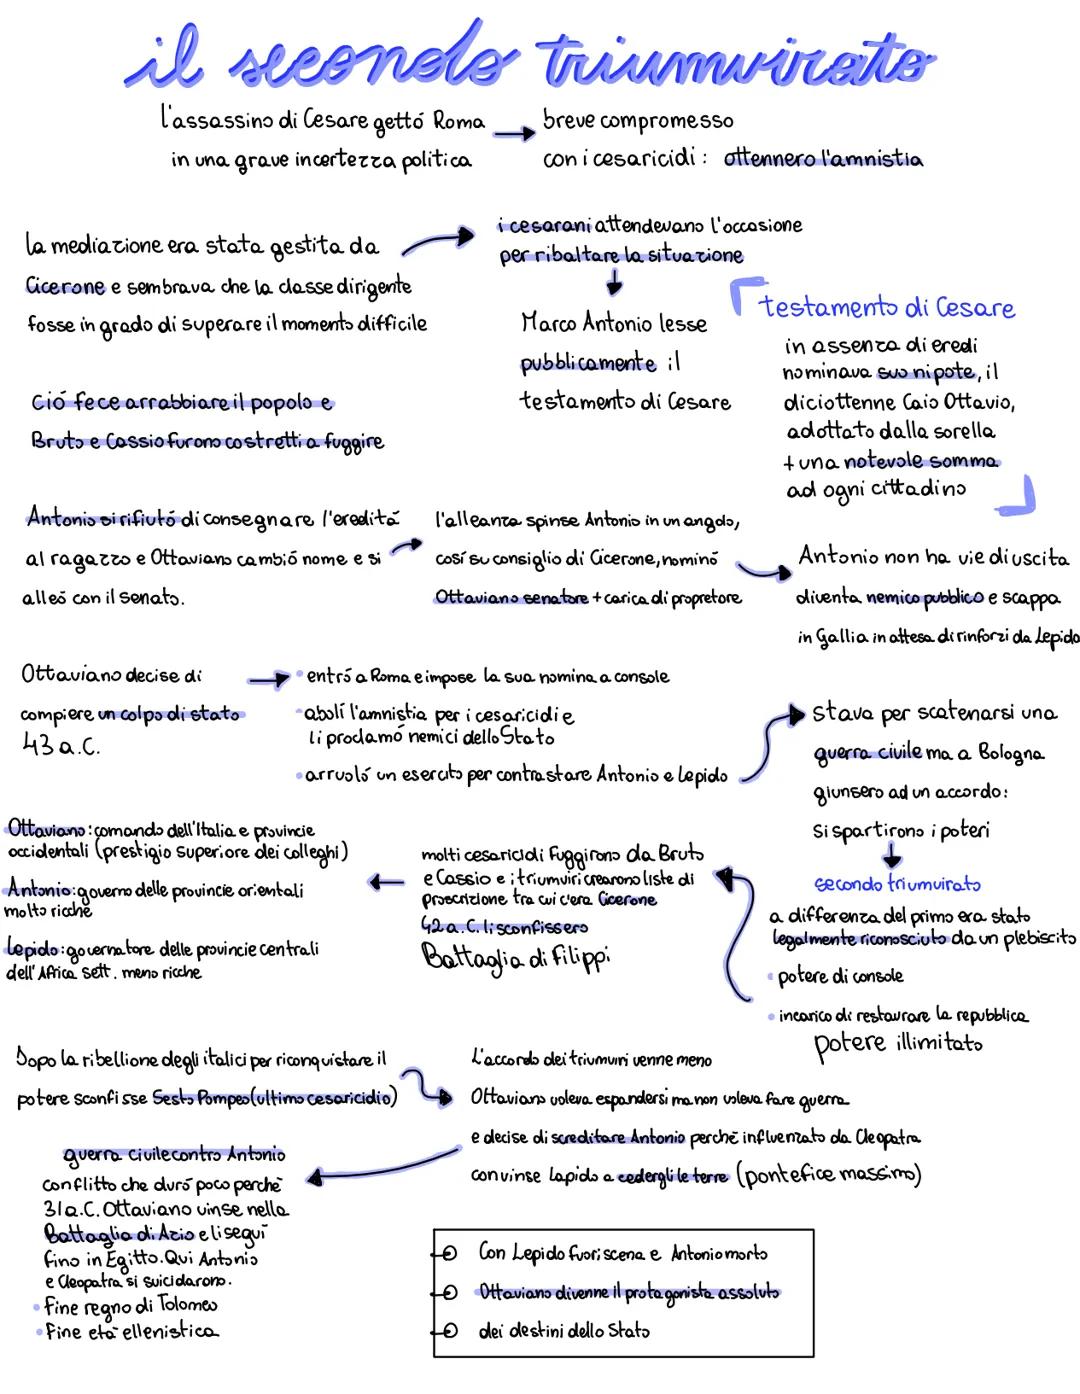 il secondo triumvirato
l'assassino di Cesare gettó Roma
in una grave incertezza politica
breve compromesso
con i cesaricidi: ottennero l'amnistia
la mediazione era stata gestita da
Cicerone e sembrava che la classe dirigente
fosse in grado di superare il momento difficile
i cesarani attendevano l'occasione
per ribaltare la situazione
Marco Antonio lesse
pubblicamente il
testamento di Cesare
testamento di Cesare
in assenza di eredi
nominava suo nipote, il
diciottenne Caio Ottavio,
adottato dalla sorella
+ una notevole somma
ad ogni cittadino
Ció fece arrabbiare il popolo e
Bruto e Cassio furono costretti a fuggire
Antonio si rifiutó di consegnare l'ereditá
al ragazzo e Ottaviano cambió nome e si
alleó con il senato.
l'alleanza spinse Antonio in un angolo,
cosí su consiglio di Cicerone, nominó
Ottaviano senatore + carica di propretore
Antonio non ha vie di uscita
diventa nemico pubblico e scappa
in Gallia in attesa di rinforzi da Lepido
Ottaviano decise di
compiere un colpo di stato
43 a.C.
• entró a Roma e impose la sua nomina a console
• abolí l'amnistia per i cesaricidi e
li proclamó nemici dello Stato
• arruoló un esercito per contrastare Antonio e Lepido
stava per scatenarsi una
guerra civile ma a Bologna
giunsero ad un accordo:
si spartirono i poteri
secondo triumvirato
a differenza del primo era stato
legalmente riconosciuto da un plebiscito
• potere di console
• incarico di restaurare la repubblica
potere illimitato
molti cesaricidi fuggirono da Bruto
e Cassio e i triumviri crearono liste di
proscrizione tra cui c'era Cicerone
42 a.C. li sconfissero
Battaglia di Filippi
Ottaviano: comando dell'Italia e provincie
occidentali (prestigio superiore dei colleghi)
Antonio: governo delle provincie orientali
molto ricche
Lepido: governatore delle provincie centrali
dell'Africa sett. meno ricche
Dopo la ribellione degli italici per riconquistare il
potere sconfisse Sesto Pompeo (ultimo cesaricidio)
L'accordo dei triumviri venne meno
Ottaviano voleva espandersi ma non voleva fare guerra
e decise di screditare Antonio perché influenzato da Cleopatra
convinse Lapido a cedergli le terre (pontefice massimo)
guerra civile contro Antonio
conflitto che duró poco perché
31 a.C. Ottaviano vinse nella
Battaglia di Azio e li seguí
fino in Egitto. Qui Antonio
e Cleopatra si suicidarono.
• Fine regno di Tolomeo
• Fine etá ellenistica
Con Lepido fuori scena e Antonio morto
Ottaviano divenne il protagonista assoluto
dei destini dello Stato